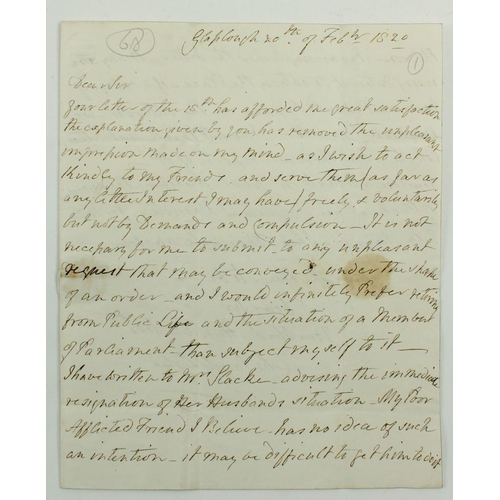 68
1
Glaslough 20th of Febr 1820
Dear Sir
Your letter of the 15th has afforded me great satisfaction
the explanation given by you has removed the unpleasant
impression made on my mind - as I wish to act
kindly to my Friends and serve them (as far as
any little Interest I may have) freely & voluntarily
but not by Demands and compulsion - It is not
necessary for me to submit to any unpleasant
request that may be conveyed under the shape
of an order - and I would infinitely Prefer retiring
from Public Life and the situation of a Member
of Parliament - than subject myself to it -
I have written to Mrs Slacke - advising the immediate
resignation of Her Husbands situation - My Poor
Afflicted Friend I Believe - has no idea of such
an intention - it may be difficult to get him to do it